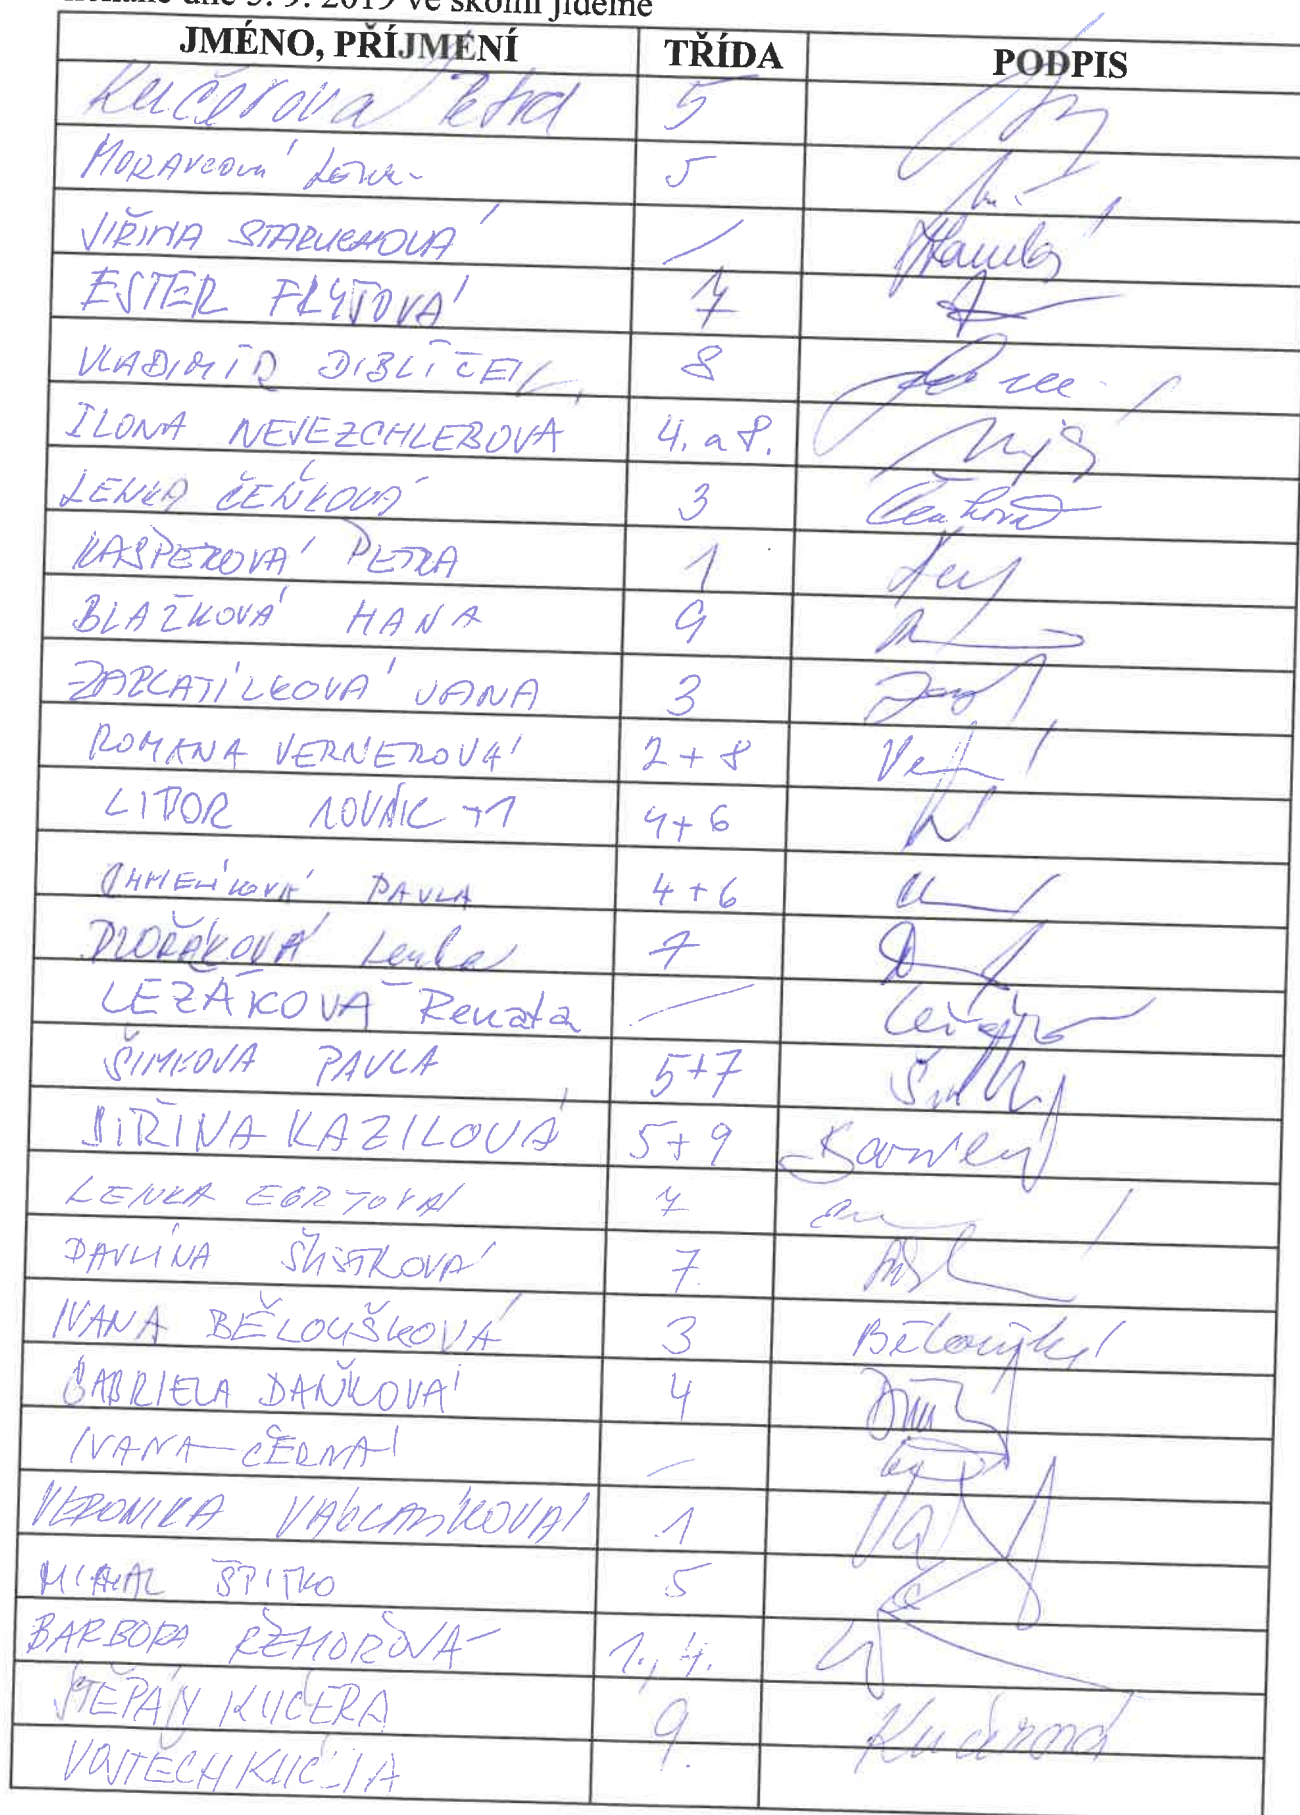 konané dne 5. 9. 2019 ve školní jídelně
JMÉNO, PŘÍJMENÍ TŘÍDA PODPIS
Kučerová Petra 5
MORAVCOVÁ Lenka 5
JIŘINA STARUCHOVÁ /
ESTER FLÝTOVÁ 7
VLADIMÍR DIBLÍČEK 8
ILONA NEJEZCHLEBOVÁ 4. a 8.
LENKA ČEŇKOVÁ 3 Čeňková
KAŠPEROVÁ PETRA 1
BLAŽKOVÁ HANA 9
ZAPLATÍLKOVÁ JANA 3
ROMANA VERNEROVÁ 2 + 8
LIBOR NOVÁK +1 4+6
CHMELÍKOVÁ PAVLA 4 + 6
DVOŘÁKOVÁ Lenka 7
LEŽÁKOVÁ Renata /
ŠIMKOVÁ PAVLA 5+7
JIŘINA KAZILOVÁ 5+9
LENKA EGRTOVÁ 7
PAVLÍNA 7
IVANA BĚLOUŠKOVÁ 3
GABRIELA DAŇKOVÁ 4
IVANA ČERNÁ /
VERONIKA 1
MICHAL ŠPITKO 5
BARBORA ŘEHOŘOVÁ 1., 4.
ŠTĚPÁN KUČERA 9. Kučerová
VOJTĚCH KUČERA